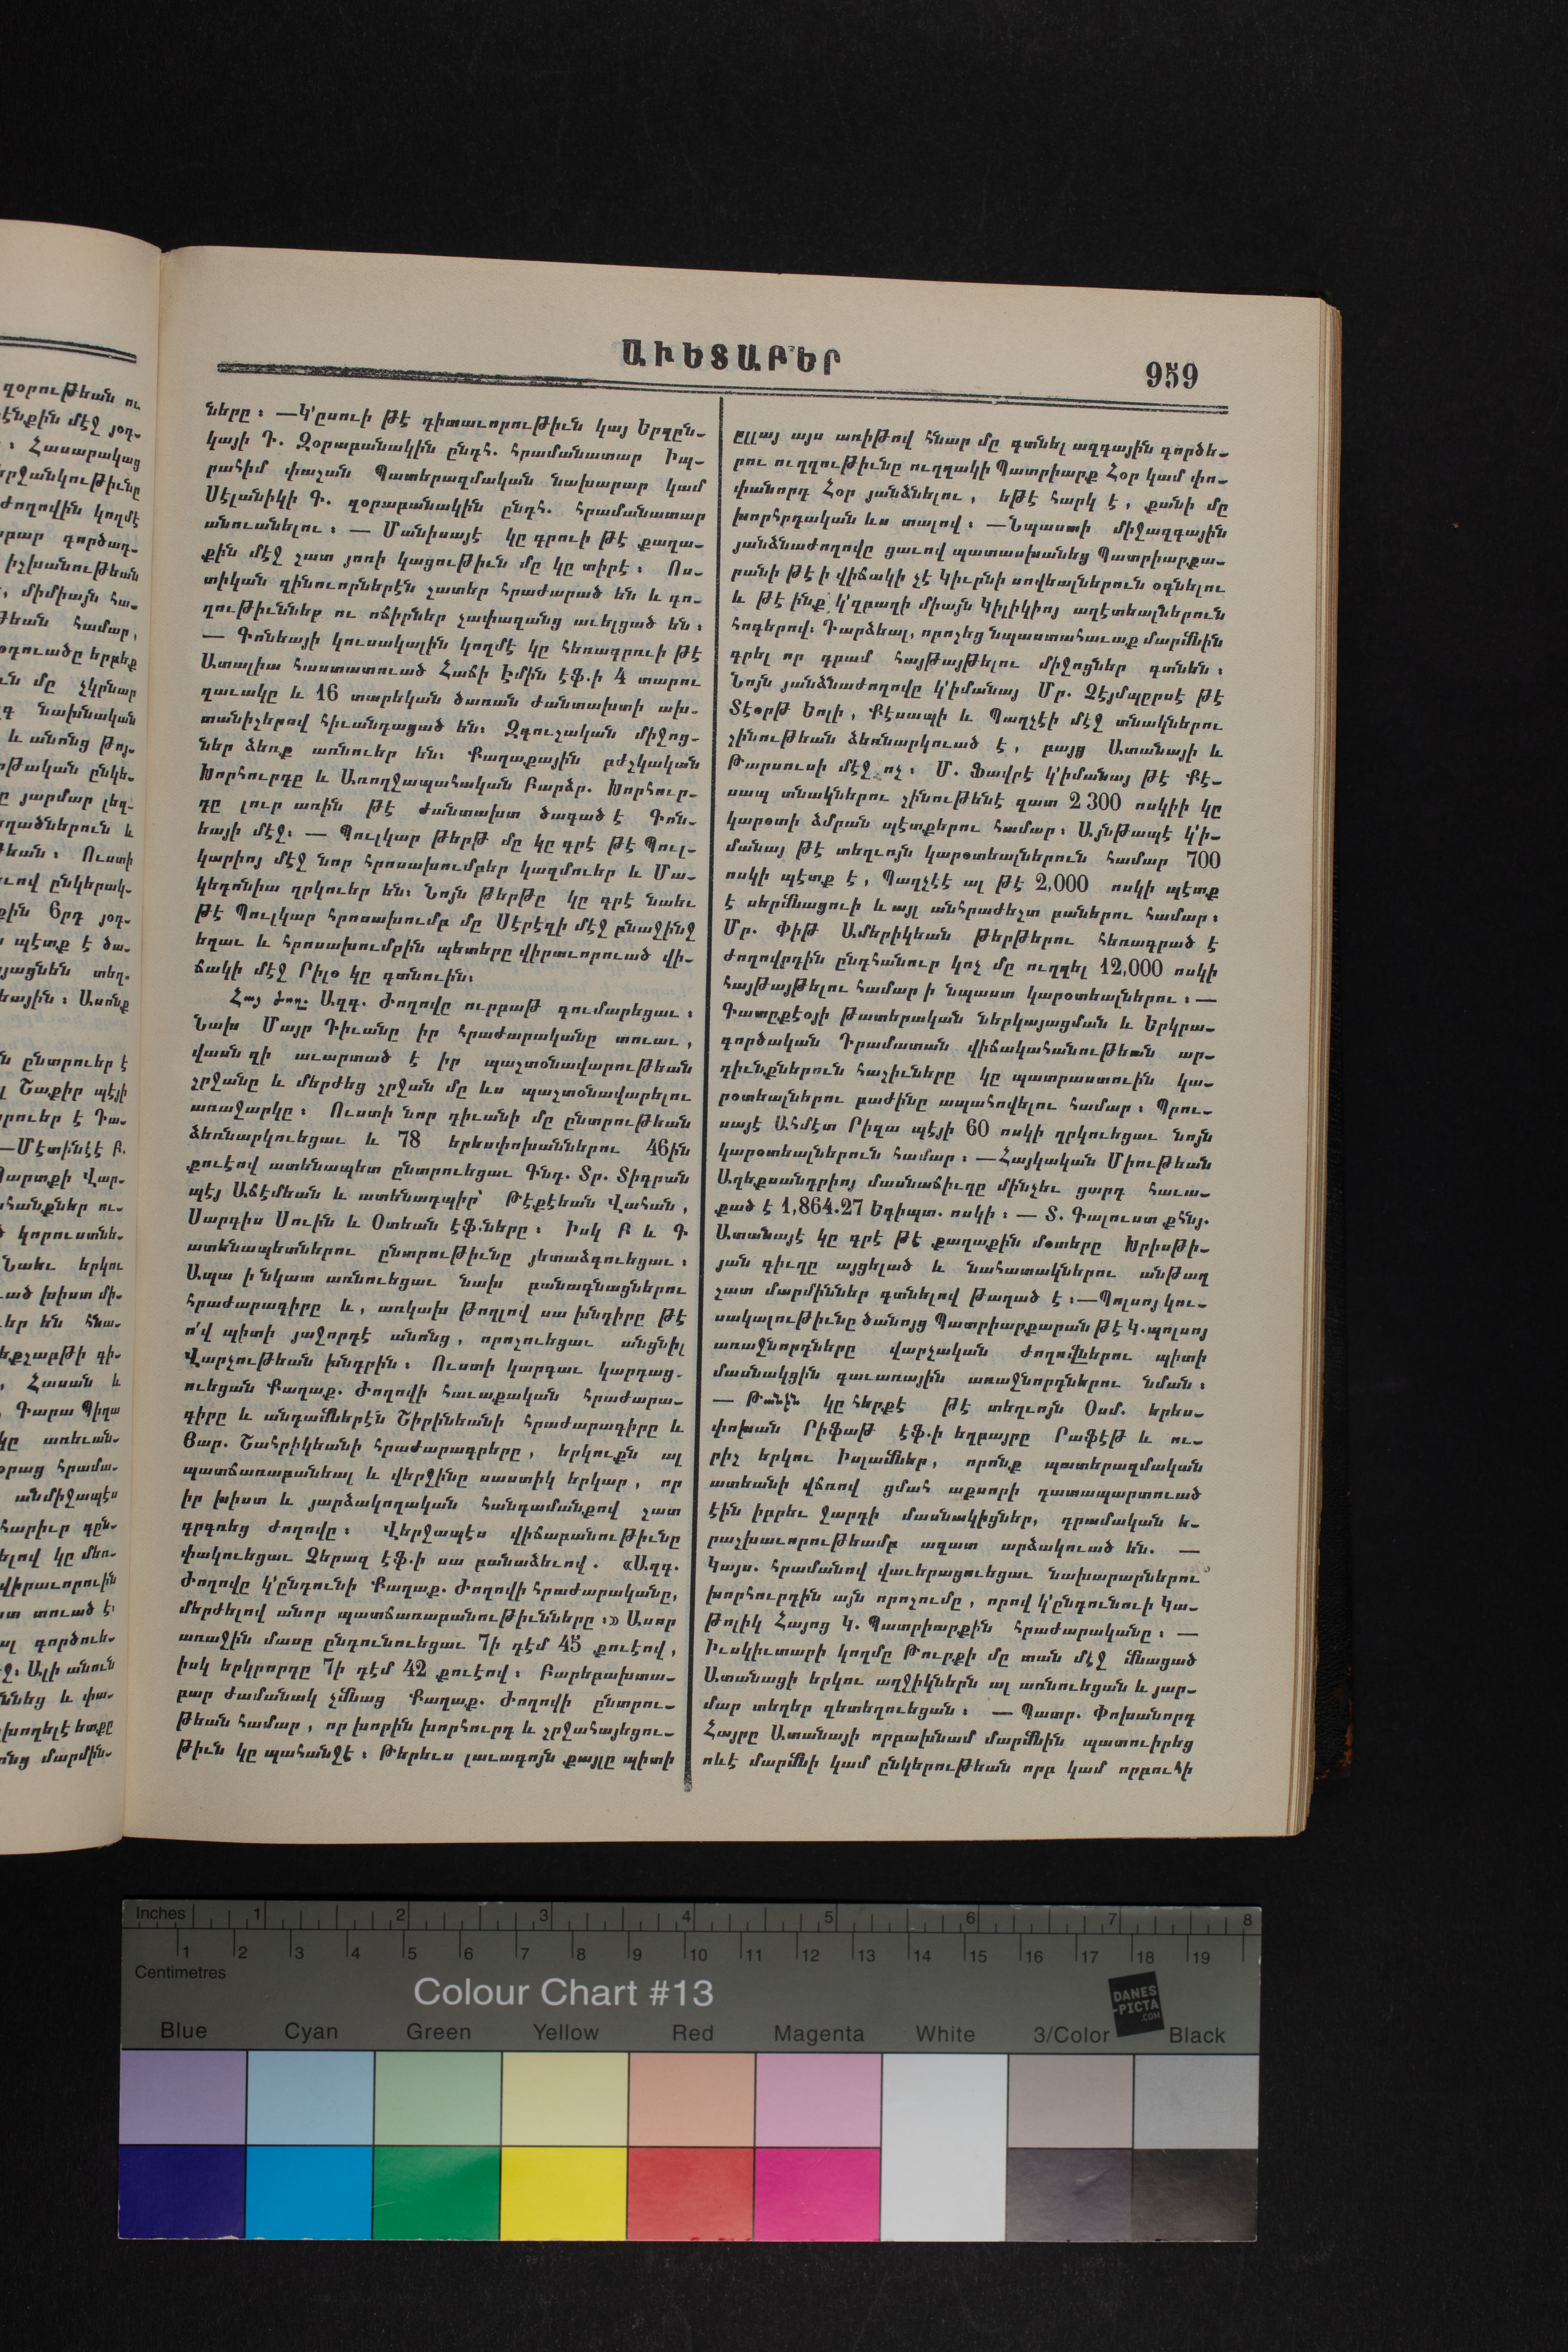 ԱՒԵՏԱԲԵՐ
959
ները։ —Կ'ըսուի թէ դիտաւորութիւն կայ Երզըն-
կայի Դ. Զօրաբանակին ընդհ. հրամանատար Իպ-
րահիմ փաշան Պատերազմական նախարար կամ
Սէլանիկի Գ. զօրաբանակին ընդհ. հրամանատար
անուանելու։ — Մանիսայէ կը գրուի թէ քաղա-
քին մէջ շատ յոռի կացութիւն մը կը տիրէ։ Ոս-
տիկան զինուորներէն շատեր հրաժարած են և գո-
ղութիւններ ու ոճիրներ չափազանց աւելցած են։
— Գոնեայի կուսակալին կողմէ կը հեռագրուի թէ
Ատալիա հաստատուած Հաճի Էմին էֆ.ի 4 տարու
զաւակը և 16 տարեկան ծառան ժանտախտի ախ-
տանիշերով հիւանդացած են։ Զգուշական միջոց-
ներ ձեռք առնուեր են։ Քաղաքային բժշկական
Խորհուրդը և Առողջապահական Բարձր. Խորհուր-
դը լուր առին թէ ժանտախտ ծագած է Գոն-
եայի մէջ։ — Պուլկար թերթ մը կը գրէ թէ Պուլ-
կարիոյ մէջ նոր հրոսախումբեր կազմուեր և Մա-
կեդոնիա ղրկուեր են։ Նոյն թերթը կը գրէ նաեւ
թէ Պուլկար հրոսախումբ մը Սէրէզի մէջ բնաջինջ
եղաւ և հրոսախումբին պետերը վիրաւորուած վի-
ճակի մէջ Րիլօ կը գտնուին։
Հայ ժող. Ազգ. Ժողովը ուրբաթ գումարեցաւ։
Նախ Մայր Դիւանը իր հրաժարականը տուաւ,
վասն զի աւարտած է իր պաշտօնավարութեան
շրջանը և մերժեց շրջան մը ևս պաշտօնավարելու
առաջարկը։ Ուստի նոր դիւանի մը ընտրութեան
ձեռնարկուեցաւ և 78 երեսփոխաններու 46ին
քուէով ատենապետ ընտրուեցաւ Գնդ. Տր. Տիգրան
պէյ Աճէմեան և ատենադպիր՝ Թէքէեան Վահան,
Սարգիս Սուին և Օտեան էֆ.ները։ Իսկ Բ և Գ
ատենապետներու ընտրութիւնը յետաձգուեցաւ։
Ապա ի նկատ առնուեցաւ նախ բանագնացներու
հրաժարագիրը և, առկախ թողլով սա խնդիրը թէ
ո՛վ պիտի յաջորդէ անոնց, որոշուեցաւ անցնիլ
Վարչութեան խնդրին։ Ուստի կարգաւ կարդաց-
ուեցան Քաղաք. Ժողովի հաւաքական հրաժարա-
գիրը և անդամներէն Շիրինեանի հրաժարագիրը և
Ցար. Շահրիկեանի հրաժարագրերը, երկուքն ալ
պատճառաբանեալ և վերջինը սաստիկ երկար, որ
իր խիստ և յարձակողական հանգամանքով շատ
գրգռեց ժողովը։ Վերջապէս վիճաբանութիւնը
փակուեցաւ Զերազ էֆ.ի սա բանաձեւով. «Ազգ.
Ժողովը կ'ընդունի Քաղաք. Ժողովի հրաժարականը,
մերժելով անոր պատճառաբանութիւնները։» Ասոր
առաջին մասը ընդունուեցաւ 7ի դէմ 45 քուէով,
իսկ երկրորդը 7ի դէմ 42 քուէով։ Բարեբախտա-
բար ժամանակ չմնաց Քաղաք. Ժողովի ընտրու-
թեան համար, որ խորին խորհուրդ և շրջահայեցու-
թիւն կը պահանջէ։ Թերեւս լաւագոյն քայլը պիտի
ըլլայ այս առիթով հնար մը գտնել ազգային գործե-
րու ուղղութիւնը ուղղակի Պատրիարք Հօր կամ փո-
փանորդ Հօր յանձնելու, եթէ հարկ է, քանի մը
խորհրդական ևս տալով։ —Նպաստի միջազգային
յանձնաժողովը ցաւով պատասխանեց Պատրիարքա-
րանի թէ ի վիճակի չէ Կիւրնի սովեալներուն օգնելու
և թէ ինք կ'զբաղի միայն Կիլիկիոյ աղէտեալներուն
հոգերով։ Դարձեալ, որոշեց նպաստահաւաք մարմնին
գրել որ դրամ հայթայթելու միջոցներ գտնեն։
Նոյն յանձնաժողովը կ'իմանայ Մր. Չէյմպըրսէ թէ
Տէօրթ Եոլի, Քէսապի և Պաղչէի մէջ տնակներու
շինութեան ձեռնարկուած է, բայց Ատանայի և
Թարսուսի մէջ ոչ։ Մ. Ֆավրէ կ'իմանայ թէ Քէ-
սապ տնակներու շինութենէ զատ 2300 ոսկիի կը
կարօտի ձմրան պէտքերու համար։ Այնթապէ կ'ի-
մանայ թէ տեղւոյն կարօտեալներուն համար 700
ոսկի պէտք է, Պաղչէէ ալ թէ 2,000 ոսկի պէտք
է սերմնացուի և այլ անհրաժեշտ բաներու համար։
Մր. Փիթ Ամերիկեան թերթերու հեռագրած է
ժողովրդին ընդհանուր կոչ մը ուղղել 12,000 ոսկի
հայթայթելու համար ի նպաստ կարօտեալներու։ —
Գատըքէօյի թատերական ներկայացման և Երկրա-
գործական Դրամատան վիճակահանութեան ար-
դիւնքներուն հաշիւները կը պատրաստուին կա-
րօտեալներու բաժինը ապահովելու համար։ Պրու-
սայէ Ահմէտ Րիզա պէյի 60 ոսկի ղրկուեցաւ նոյն
կարօտեալներուն համար։ —Հայկական Միութեան
Աղեքսանդրիոյ մասնաճիւղը մինչեւ ցարդ հաւա-
քած է 1,864.27 Եգիպտ. ոսկի։ — Տ. Գալուստ քհնյ.
Ատանայէ կը գրէ թէ քաղաքին մօտերը Խրիսթի-
յան գիւղը այցելած և նահատակներու անթաղ
շատ մարմիններ գտնելով թաղած է։ —Պոլսոյ կու-
սակալութիւնը ծանոյց Պատրիարքարան թէ Կ.պոլսոյ
առաջնորդները վարչական ժողովներու պիտի
մասնակցին գաւառային առաջնորդներու նման։
— Թանին կը հերքէ թէ տեղւոյն Օսմ. երես-
փոխան Րիֆաթ էֆ.ի եղբայրը Րաֆէթ և ու-
րիշ երկու Իսլամներ, որոնք պատերազմական
ատեանի վճռով ցմահ աքսորի դատապարտուած
էին իբրեւ ջարդի մասնակիցներ, դրամական ե-
րաշխաւորութեամբ ազատ արձակուած են. —
Կայս. հրամանով վաւերացուեցաւ նախարարներու
խորհուրդին այն որոշումը, որով կ'ընդունուի Կա-
թոլիկ Հայոց Կ. Պատրիարքին հրաժարականը։ —
Իւսկիւտարի կողմը Թուրքի մը տան մէջ մնացած
Ատանացի երկու աղջիկներն ալ առնուեցան և յար-
մար տեղեր զետեղուեցան։ — Պատր. Փոխանորդ
Հայրը Ատանայի որբախնամ մարմնին պատուիրեց
ոևէ մարմնի կամ ընկերութեան որբ կամ որբուհի
Inches 1 2 3 4 5 6 7 8
1 2 3 4 5 6 7 8 9 10 11 12 13 14 15 16 17 18 19
Centimetres
Colour Chart #13
DANES
-PICTA
.COM
Blue Cyan Green Yellow Red Magenta White 3/Color Black